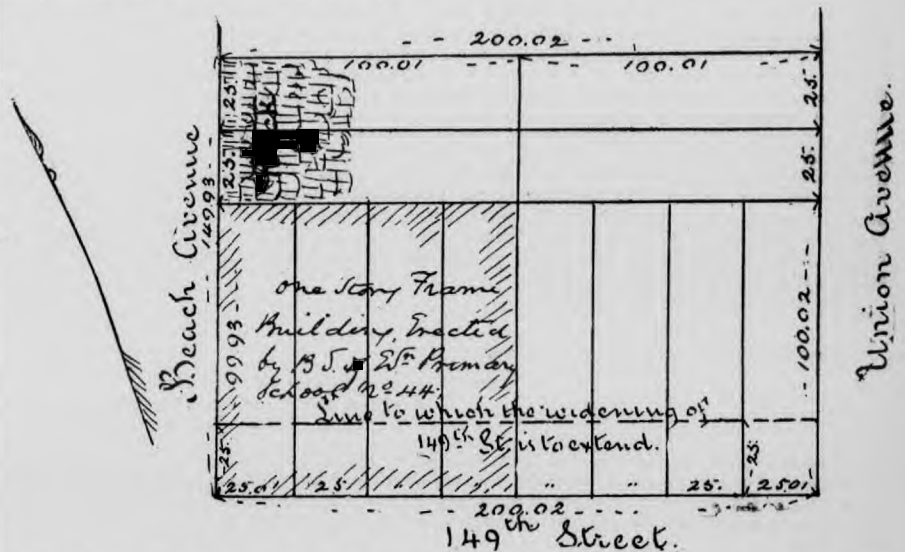 200.02
100.01 100.01
25. 25.
25. 25.
Beach Avenue
149.93
Union Avenue.
99.93
100.02
One Story Frame
Building, Erected
by B of Edn Primary
School No 44
Line to which the widening of
149th St. is to extend.
25. 25.
25.01 25. " " " " 25. 25.01
200.02
149th Street.